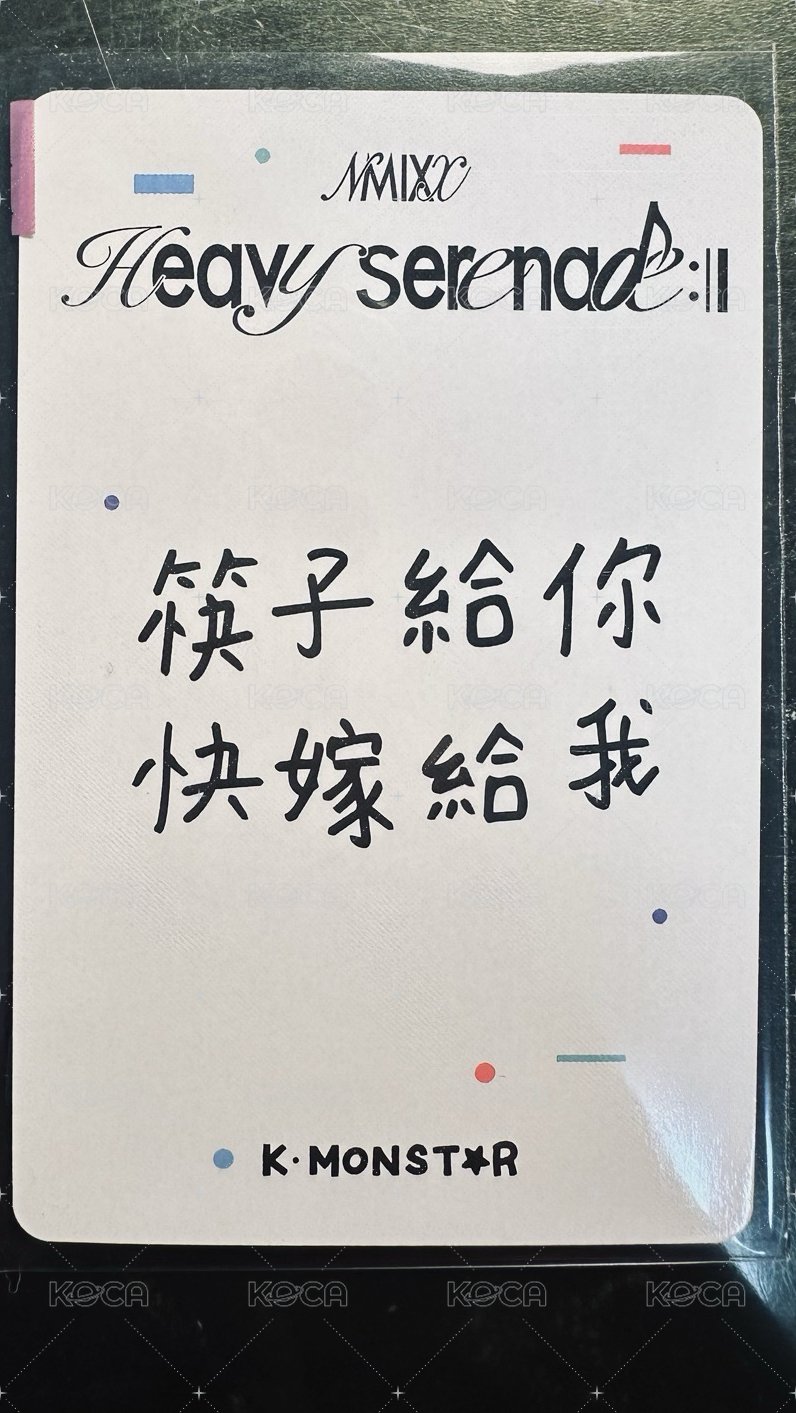 NMIXX
Heavy serenade
筷子給你
快嫁給我
K·MONST★R
KOCA KOCA KOCA KOCA